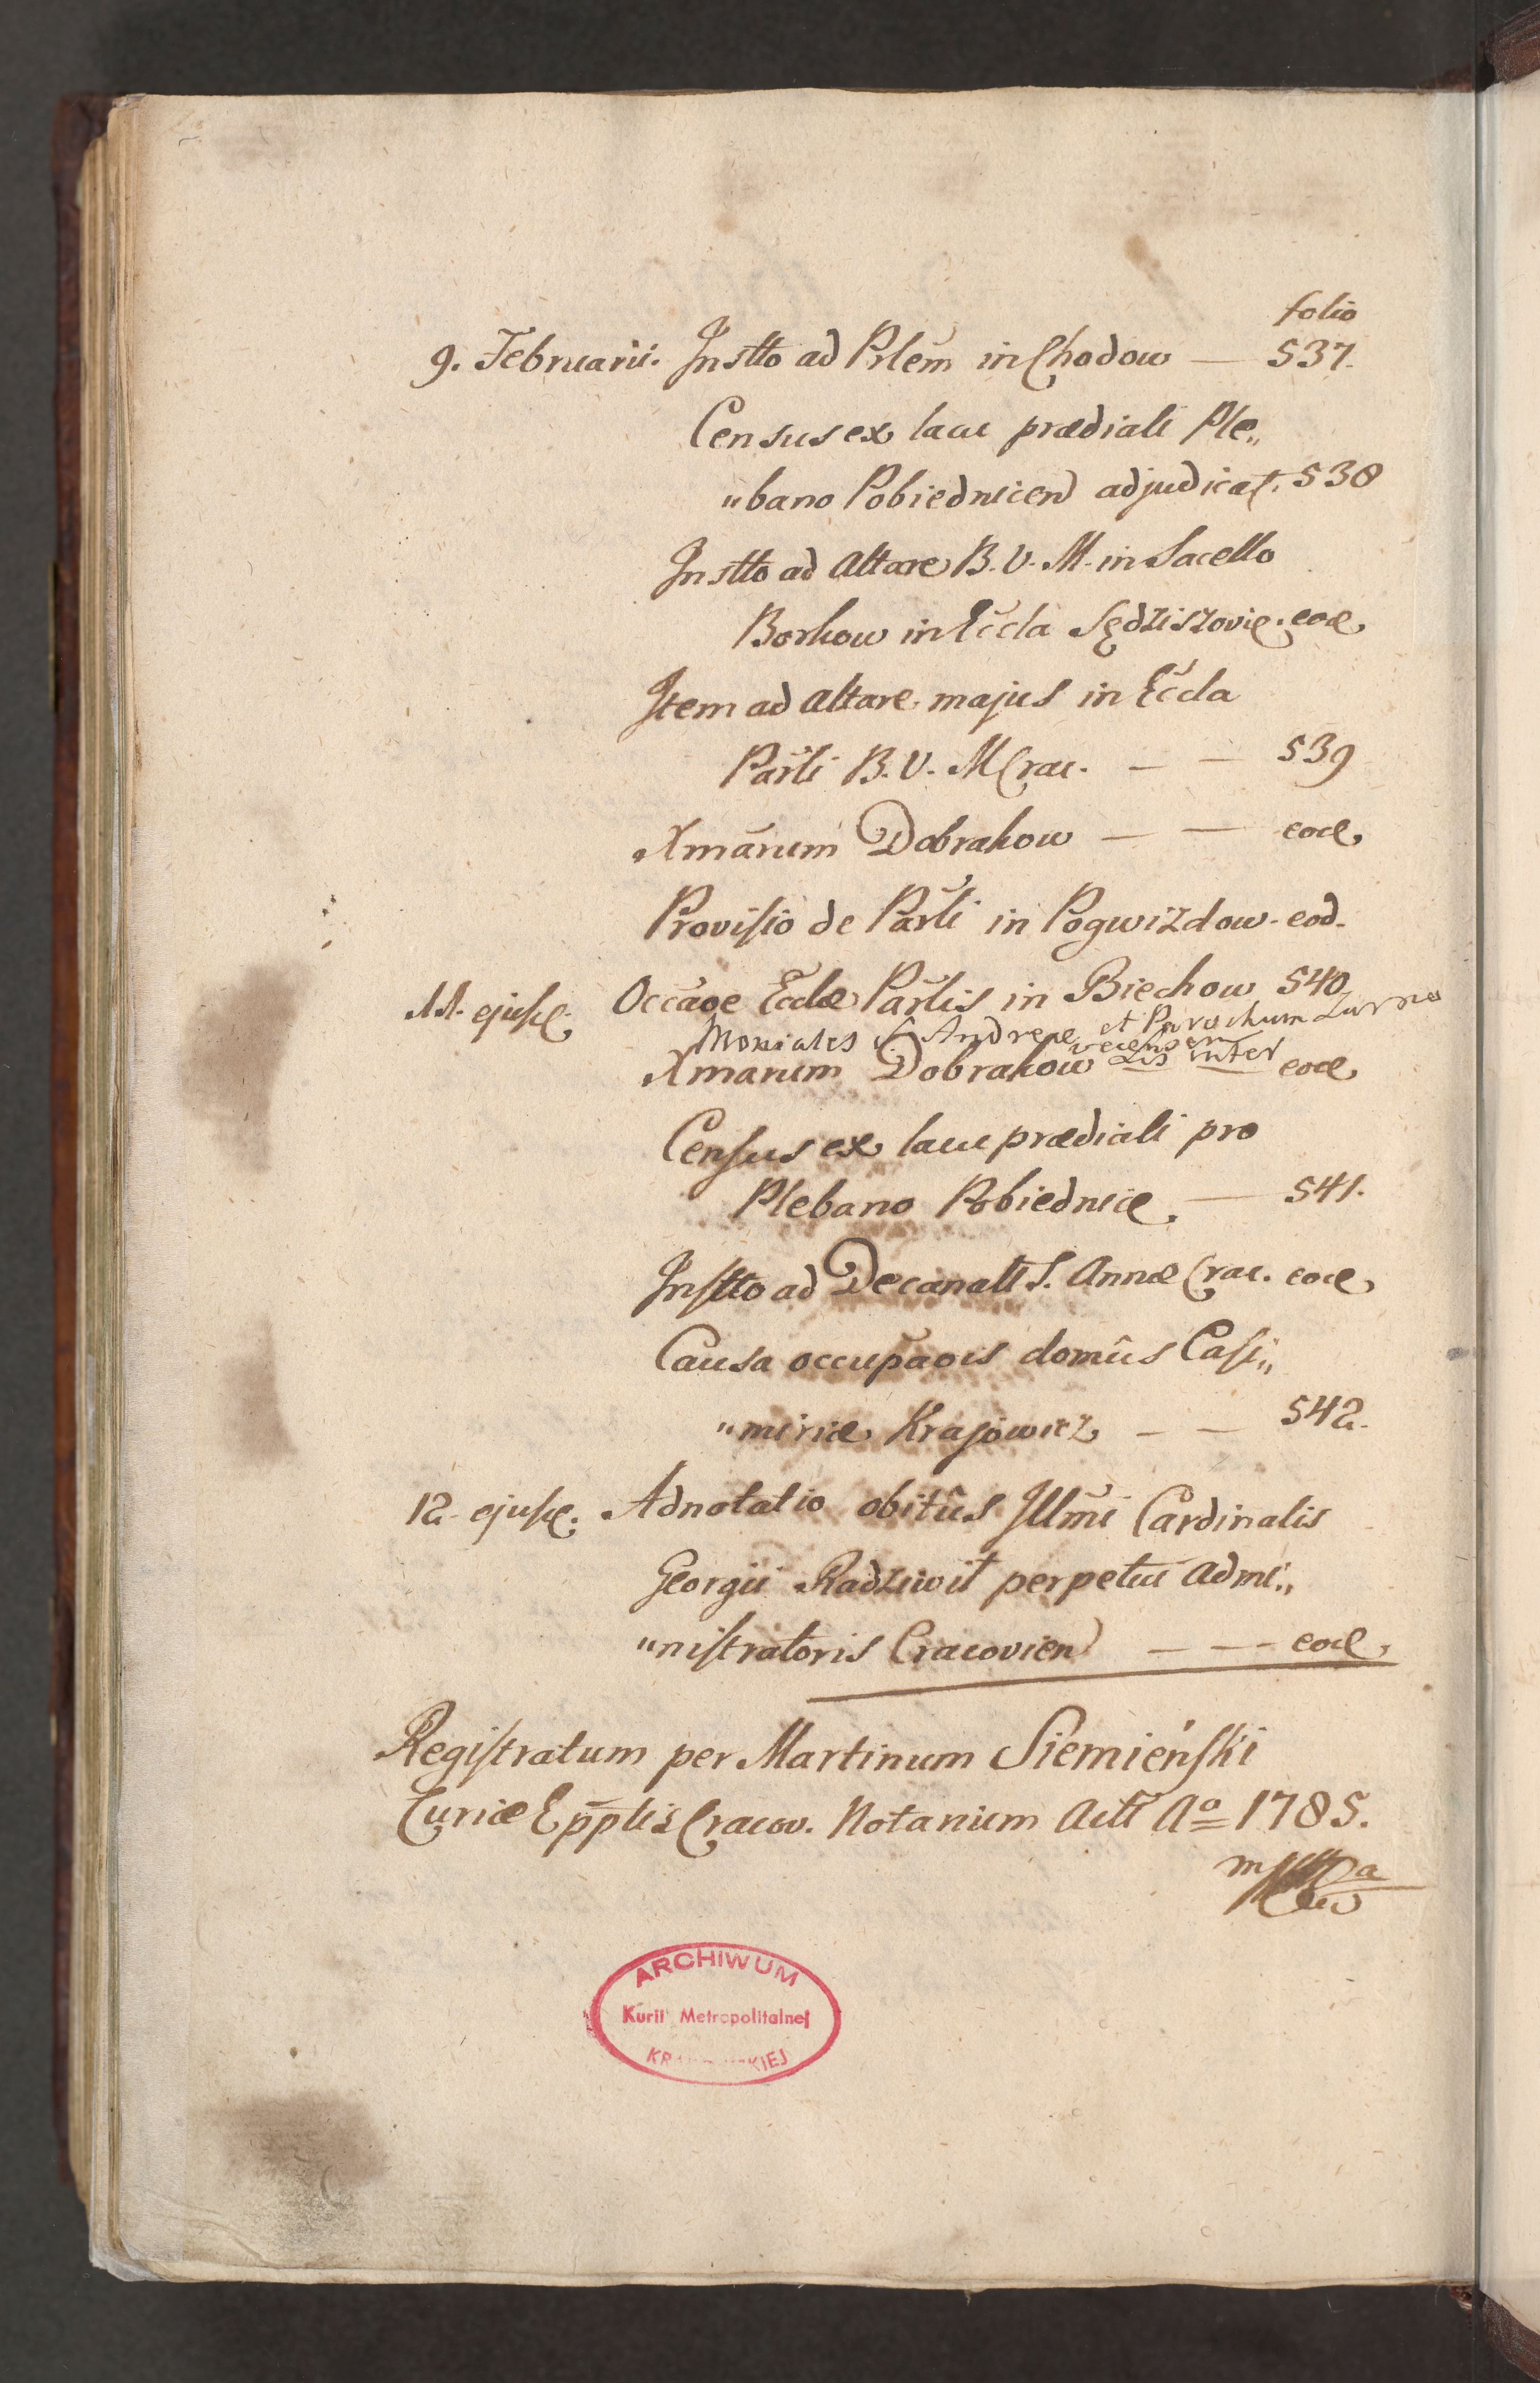 folio
9. Februarii. Instto ad Plem in Chodow — 537.
Census ex laneo prædiali Ple„
„bano Pobiednicen adjudicat. 538
Instto ad Altare B. V. M. in Sacello
Borkow in Eccla Sędziszovie. eod.
Item ad Altare majus in Eccla
Parli B. V. M Crac. — — 539
Xmarum Dobrakow — — eod.
Provisio de Parli in Pogwizdow - eod.
11. ejusd. Occaoe Eccłæ Parlis in Biechow 540
Moniales S. Andreæ et Parochum
Xmarum Dobrakow Lis inter eod.
Census ex laneo prædiali pro
Plebano Pobiednic. — 541.
Instto ad Decanatt S. Annæ Crac. eod.
Causa occupaois domûs Casi„
„miriæ Krasowicz — — 542.
12. ejusd. Adnotatio obitûs Illmi Cardinalis
Georgii Radziwił perpetui Admi„
„nistratoris Cracovien — — — eod.
Registratum per Martinum Siemieński
Curiæ Epplis Cracov. Notarium Actt Aº 1785.
ARCHIWUM
Kurii Metropolitalnej